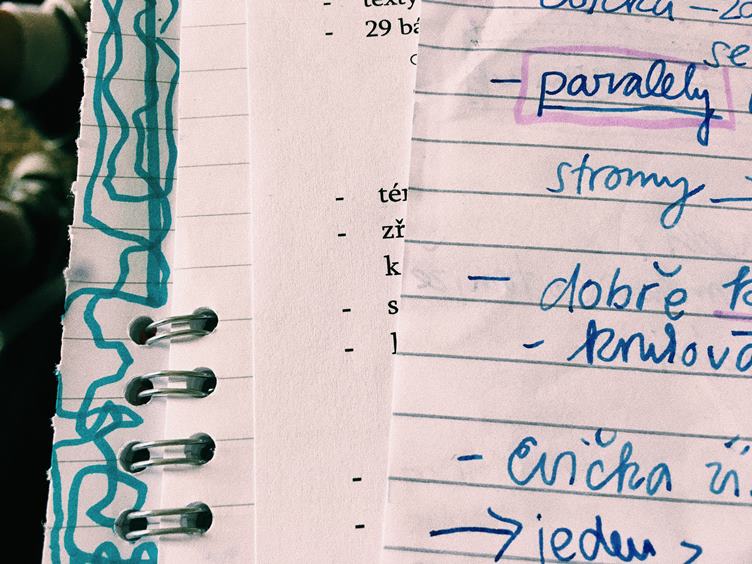 - texty
- 29 bá
- tém
- zř
k
- s
- l
-
-
se
- paralely
stromy →
- dobře k
- krulová
- Evička ží
→ jeden >